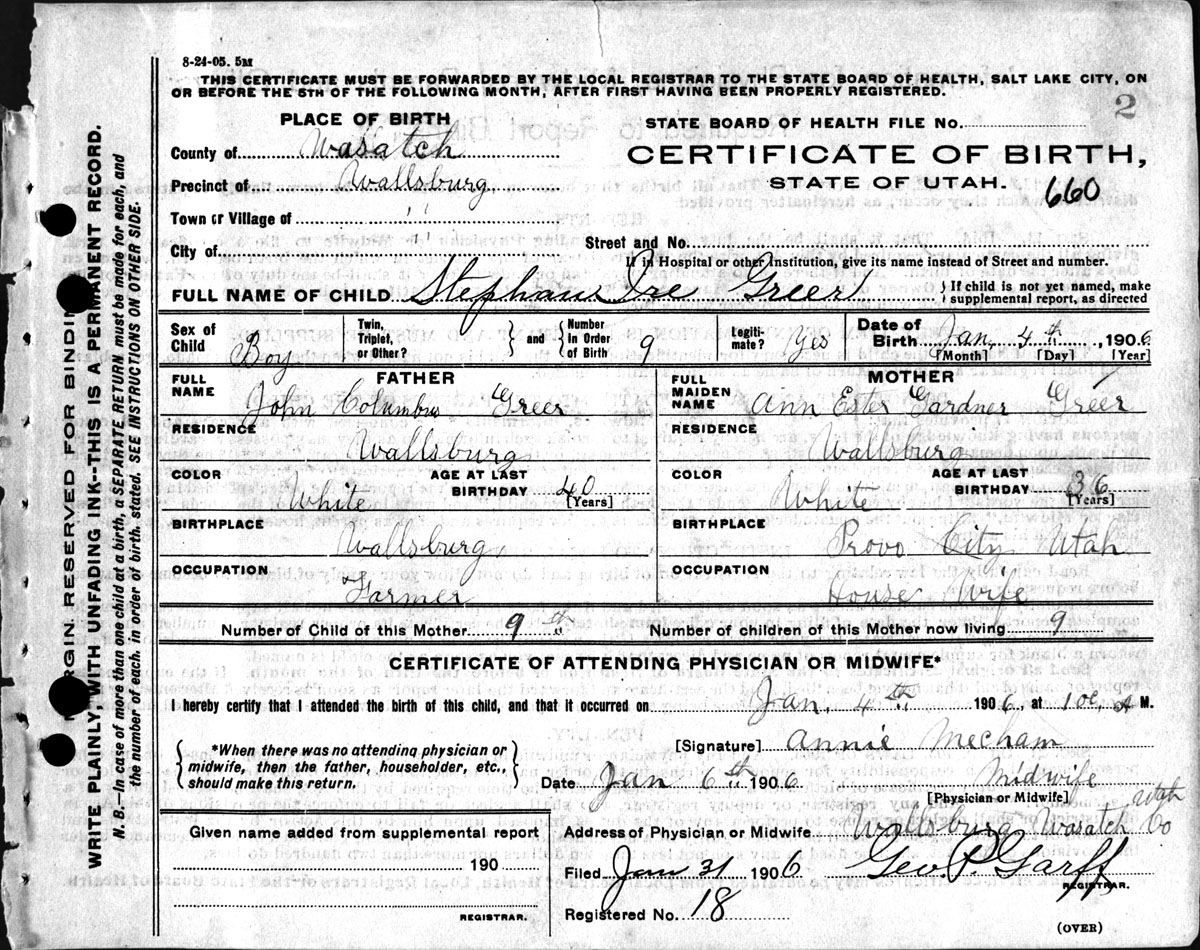 8-24-05. 5M
THIS CERTIFICATE MUST BE FORWARDED BY THE LOCAL REGISTRAR TO THE STATE BOARD OF HEALTH, SALT LAKE CITY, ON
OR BEFORE THE 5TH OF THE FOLLOWING MONTH, AFTER FIRST HAVING BEEN PROPERLY REGISTERED.
2
PLACE OF BIRTH
STATE BOARD OF HEALTH FILE No.
County of Wasatch
CERTIFICATE OF BIRTH,
Precinct of Wallsburg
STATE OF UTAH. 660
Town or Village of " "
City of " " Street and No.
If in Hospital or other Institution, give its name instead of Street and number.
FULL NAME OF CHILD Stephan Ore Greer } If child is not yet named, make
supplemental report, as directed
Sex of Child Boy Twin, Triplet, or Other? } and { Number in Order of Birth 9 Legiti-mate? Yes Date of Birth Jan, 4th, 1906
[Month] [Day] [Year]
FATHER
FULL NAME John Columbus Greer
RESIDENCE Wallsburg
COLOR White AGE AT LAST BIRTHDAY 40 [Years]
BIRTHPLACE Wallsburg
OCCUPATION Farmer
MOTHER
FULL MAIDEN NAME Ann Ester Gardner Greer
RESIDENCE Wallsburg
COLOR White AGE AT LAST BIRTHDAY 36 [Years]
BIRTHPLACE Provo City Utah
OCCUPATION House Wife
Number of Child of this Mother 9th Number of children of this Mother now living 9
CERTIFICATE OF ATTENDING PHYSICIAN OR MIDWIFE*
I hereby certify that I attended the birth of this child, and that it occurred on Jan, 4th 1906, at 1 oc, A M.
{ *When there was no attending physician or
midwife, then the father, householder, etc.,
should make this return. }
[Signature] Annie Mecham
Date Jan 6th 1906 Midwife
[Physician or Midwife]
Address of Physician or Midwife Wallsburg Wasatch Co Utah
Given name added from supplemental report
190
REGISTRAR.
Filed Jan 31 1906 Geo. P. Garff
REGISTRAR.
Registered No. 18
(OVER)
MARGIN RESERVED FOR BINDING
WRITE PLAINLY, WITH UNFADING INK--THIS IS A PERMANENT RECORD.
N. B.—In case of more than one child at a birth, a SEPARATE RETURN must be made for each, and
the number of each, in order of birth, stated. SEE INSTRUCTIONS ON OTHER SIDE.